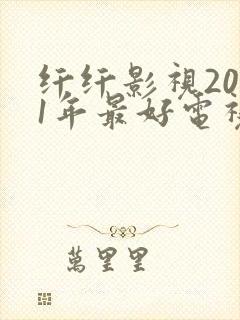 纤纤影視20
1年最好電視
萬里里